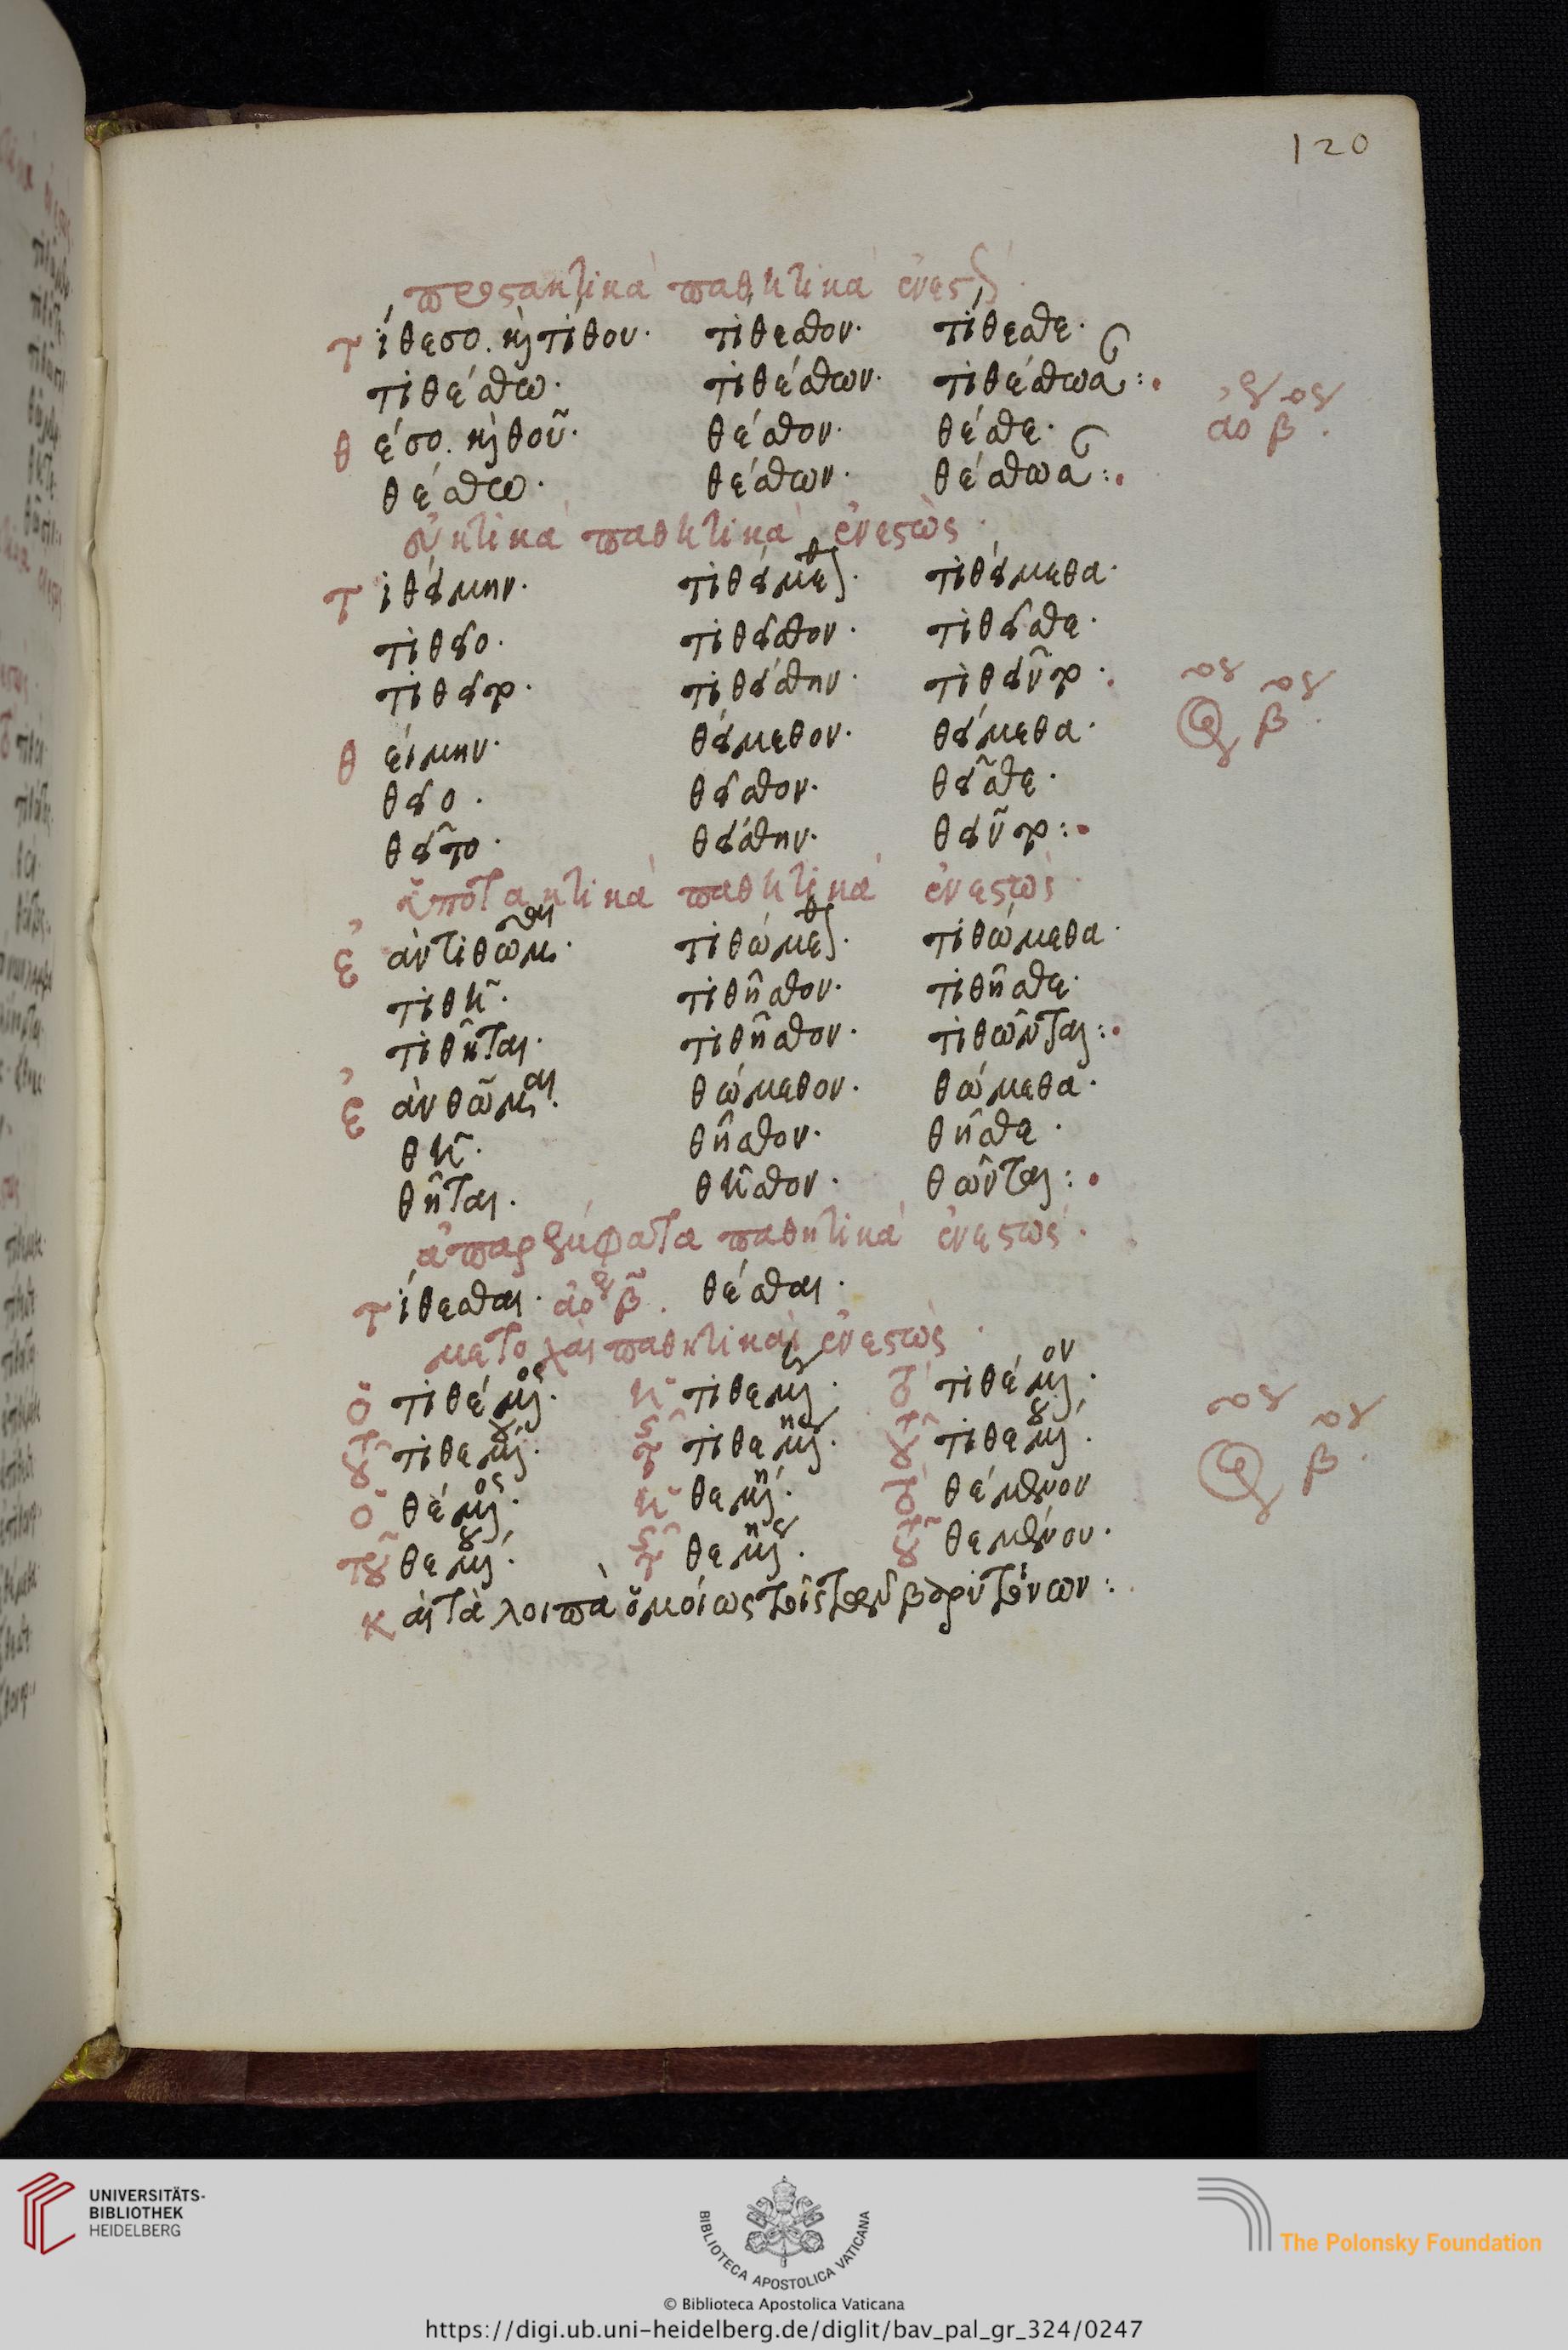 120
προστακτικὰ παθητικὰ ἐνεστ
τίθεσο. κὶ τίθου· τίθεσθον· τίθεσθε·
τιθέσθω· τιθέσθων· τιθέσθωσαν:
θέσο. κὶ θοῦ· θέσθον· θέσθε·
ἀο β.
θέσθω· θέσθων· θέσθωσαν:
εὐκτικὰ παθητικὰ ἐνεστὼς·
τιθείμην· τιθείμεθον· τιθείμεθα·
τιθεῖο· τιθεῖσθον· τιθεῖσθε·
τιθεῖτο· τιθείσθην· τιθεῖντο·
θείμην· θείμεθον· θείμεθα·
β.
θεῖο· θεῖσθον· θεῖσθε·
θεῖτο· θείσθην· θεῖντο:
ὑποτακτικὰ παθητικὰ ἐνεστὼς·
ἐὰν τιθῶμαι· τιθώμεθον· τιθώμεθα·
τιθῆ· τιθῆσθον· τιθῆσθε·
τιθῆται· τιθῆσθον· τιθῶνται:
ἐὰν θῶμαι· θώμεθον· θώμεθα·
θῆ· θῆσθον· θῆσθε·
θῆται· θῆσθον· θῶνται:
ἀπαρέμφατα παθητικὰ ἐνεστὼς·
τίθεσθαι· ἀο β. θέσθαι·
μετοχαὶ παθητικαὶ ἐνεστὼς·
ὁ τιθέμενος· ἡ τιθεμένη· τὸ τιθέμενον·
τοῦ τιθεμένου· τῆς τιθεμένης· τοῦ τιθεμένου·
β.
ὁ θέμενος· ἡ θεμένη· τὸ θέμενον
τοῦ θεμένου· τῆς θεμένης· τοῦ θεμένου·
καὶ τὰ λοιπὰ ὁμοίως τοῖς τῶν βαρυτόνων:
UNIVERSITÄTS-
BIBLIOTHEK
HEIDELBERG
BIBLIOTECA APOSTOLICA VATICANA
The Polonsky Foundation
© Biblioteca Apostolica Vaticana
https://digi.ub.uni-heidelberg.de/diglit/bav_pal_gr_324/0247